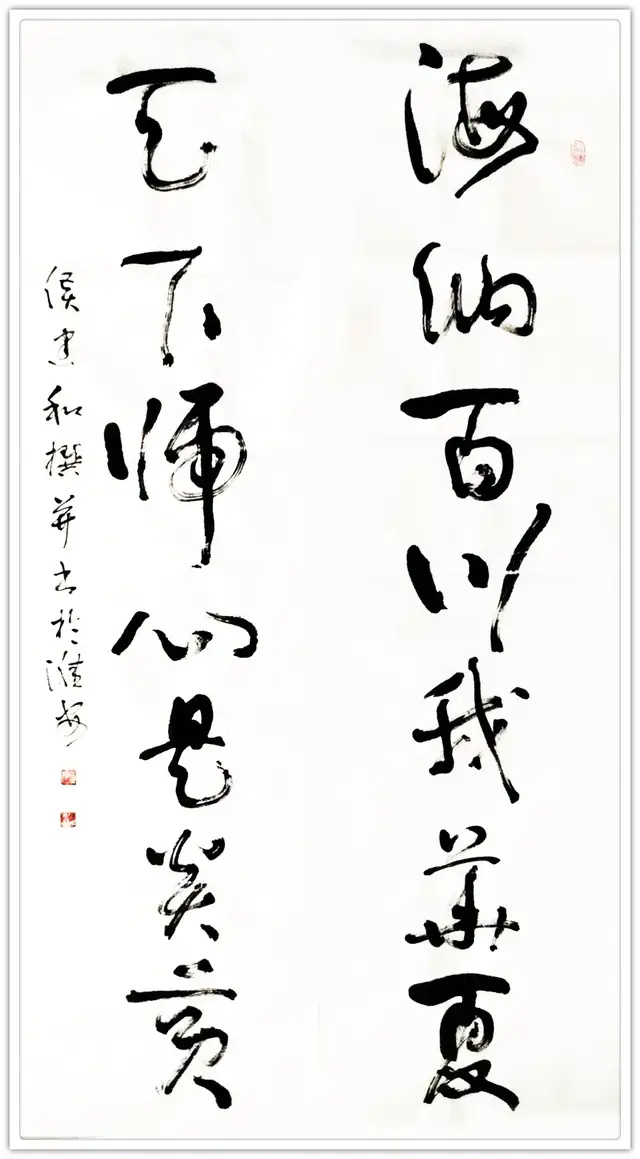 海纳百川我华夏
天下归心是炎黄
侯和撰并书於淮安